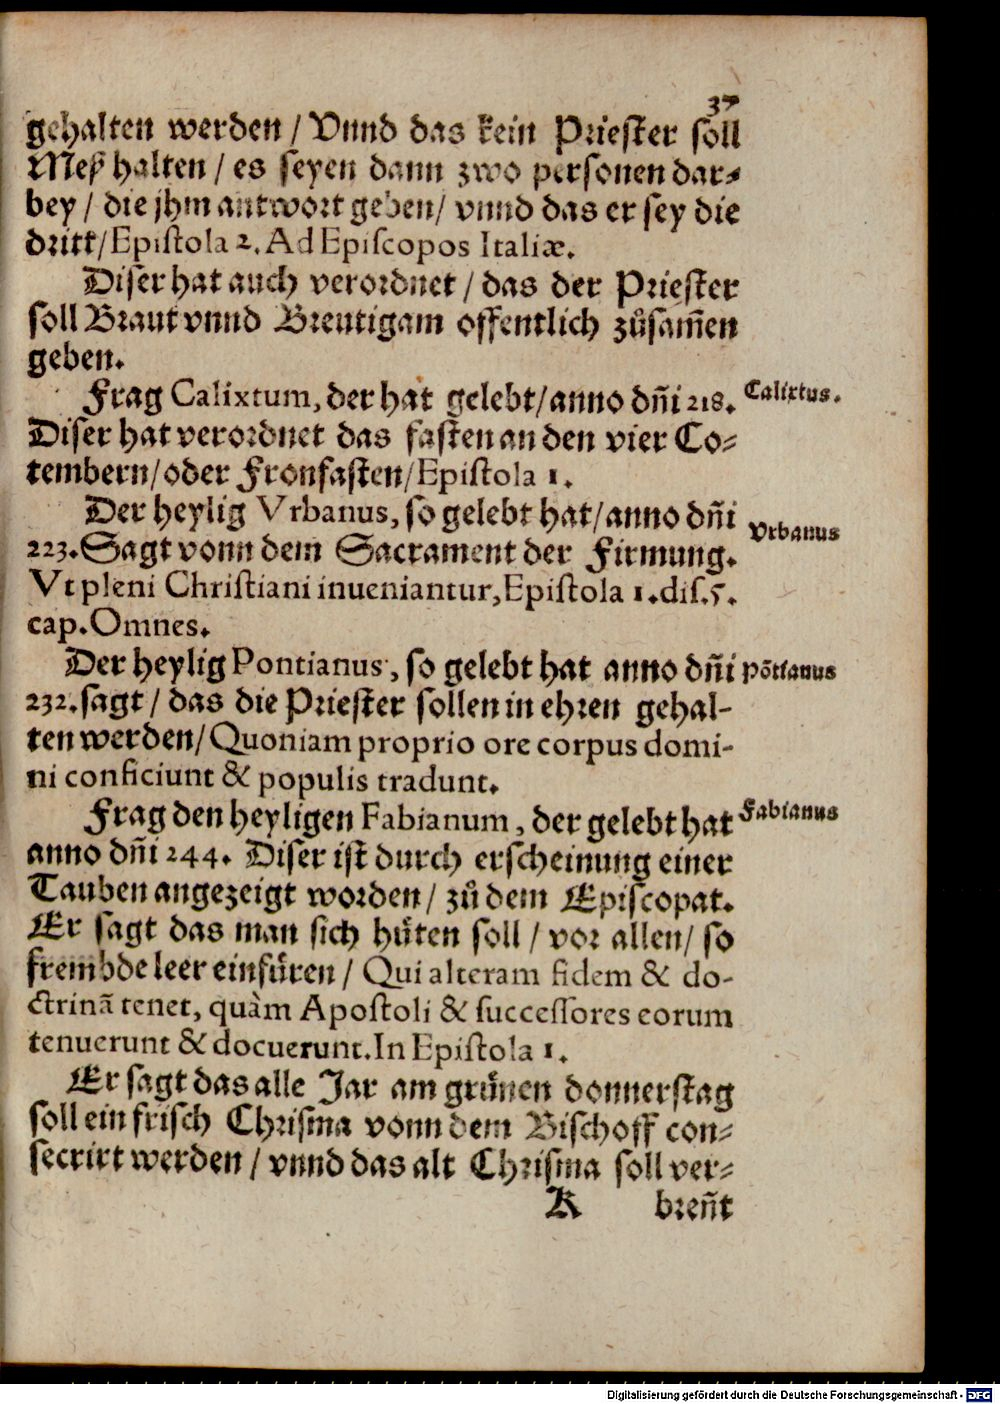 37
gehalten werden / Vnnd das kein Priester soll
Meß halten / es seyen dann zwo personen dar⸗
bey / die jhm antwort geben / vnnd das er sey die
dritt/ Epistola 2. Ad Episcopos Italiæ.
Diser hat auch verordnet / das der Priester
soll Braut vnnd Breutigam offentlich zůsam̃en
geben.
Frag Calixtum, der hat gelebt/ anno dñi 218. Calixtus.
Diser hat verordnet das fasten an den vier Co⸗
tembern/ oder Fronfasten/ Epistola 1.
Der heylig Vrbanus, so gelebt hat/ anno dñi Vrbanus
223. Sagt vonn dem Sacrament der Firmung.
Vt pleni Christiani inueniantur, Epistola 1. dis. 5.
cap. Omnes.
Der heylig Pontianus, so gelebt hat anno dñi Põtianus
232. sagt / das die Priester sollen in ehren gehal-
ten werden/ Quoniam proprio ore corpus domi-
ni conficiunt & populis tradunt.
Frag den heyligen Fabianum, der gelebt hat Fabianus
anno dñi 244. Diser ist durch erscheinung einer
Tauben angezeigt worden / zů dem Episcopat.
Er sagt das man sich hüten soll / vor allen/ so
frembde leer einfüren / Qui alteram fidem & do-
ctrinã tenet, quàm Apostoli & successores eorum
tenuerunt & docuerunt. In Epistola 1.
Er sagt das alle Jar am grünen donnerstag
soll ein frisch Chrisma vonn dem Bischoff con⸗
secrirt werden / vnnd das alt Chrisma soll ver⸗
K breñt
Digitalisierung gefördert durch die Deutsche Forschungsgemeinschaft - DFG